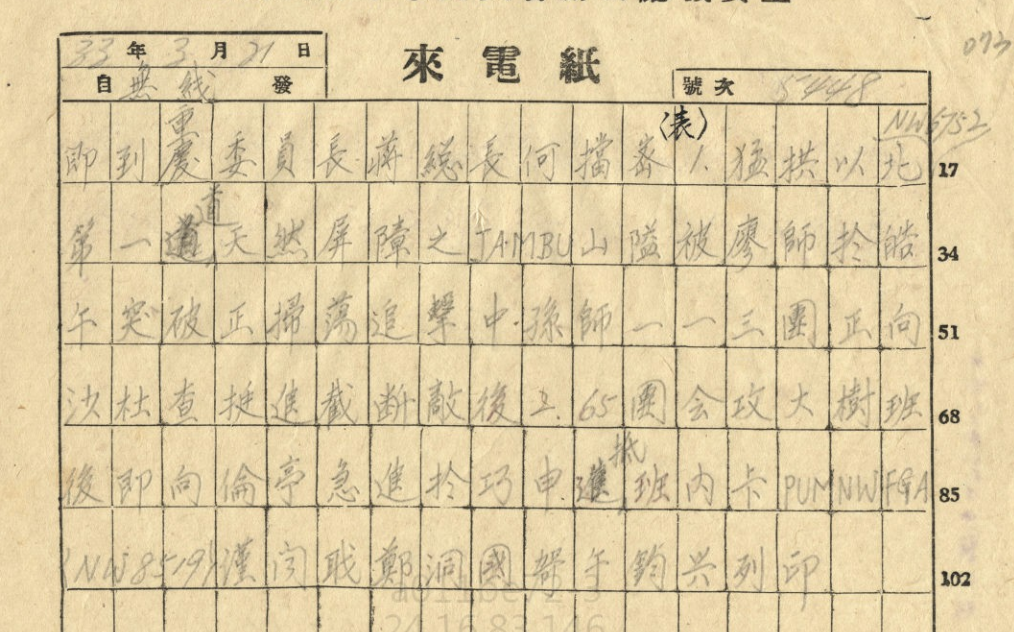 073
33年3月21日
來電紙
自無线發
號次 5448
重
(表)
NW6752
即到慶委員長蔣總長何擋密1.猛拱以北 17
道
第一道天然屏障之JAMBU山隘被廖師於皓 34
午突破正掃蕩追擊中孫師一一三團正向 51
沙杜查挺進截断敵後2.65團会攻大樹班 68
抵
後即向倫亭急進於巧申進班内卡PUMNWFGA 85
(NW8519)謹闻职鄭洞國 午鈞兴列印 102